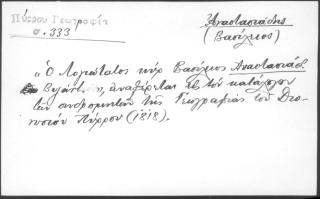 Πύρρου Γεωγραφία
σ. 333
Ἀναστασιάδης
(Βασίλειος)
"Ὁ Λογιώτατος κύρ Βασίλειος Ἀναστασιάδ.
Βυζάντ.", ἀναφέρεται εἰς τὸν κατάλογον
τῶν συνδρομητῶν τῆς Γεωγραφίας τοῦ Διο-
νυσίου Πύρρου (1818).